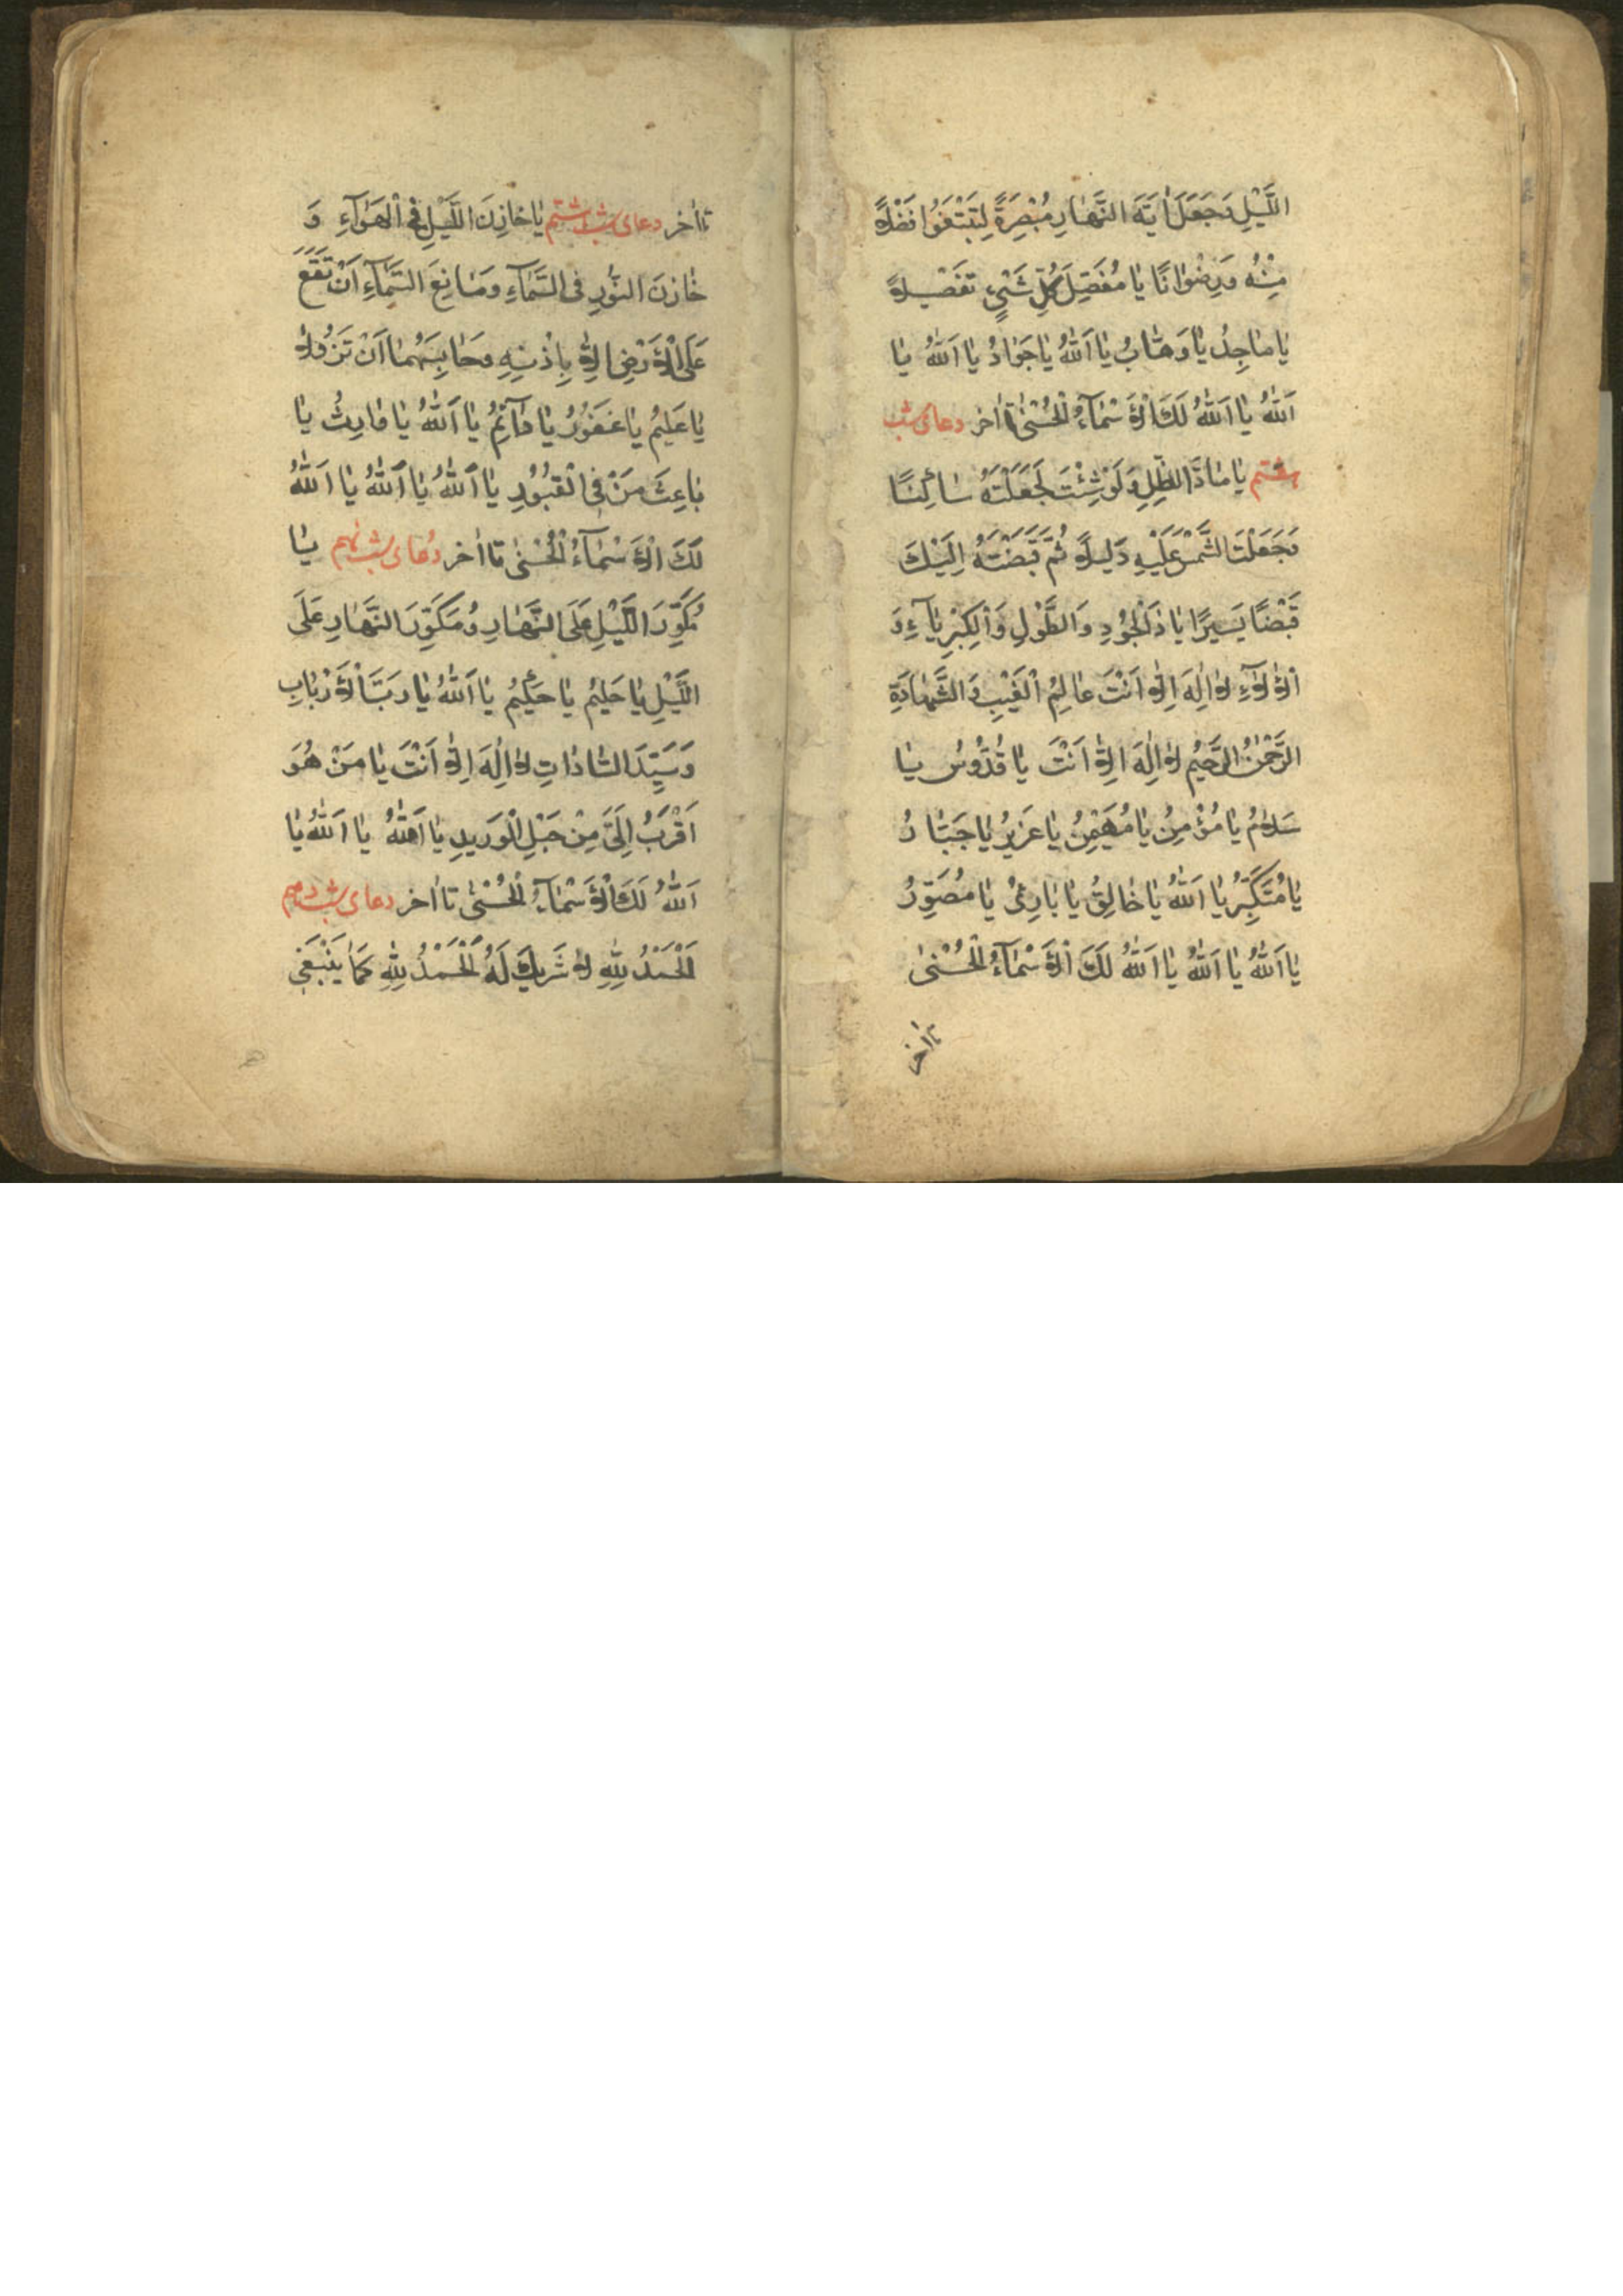 اللَّيْلِ وَجَعَلَ اٰيَةَ النَّهَارِ مُبْصِرَةً لِتَبْتَغُوا فَضْلاً
مِنْهُ وَرِضْوَانًا يَا مُفَصِّلَ كُلِّ شَيْءٍ تَفْصِيلاً
يَا مَاجِدُ يَا وَهَّابُ يَا اَللّٰهُ يَا جَوَادُ يَا اَللّٰهُ يَا
اَللّٰهُ يَا اَللّٰهُ لَكَ الْاَسْمَآءُ الْحُسْنٰى تا اٰخر دعاى شب
هفتم يَا مَادَّ الظِّلِّ وَلَوْ شِئْتَ لَجَعَلْتَهُ سَاكِنًا
وَجَعَلْتَ الشَّمْسَ عَلَيْهِ دَلِيلاً ثُمَّ قَبَضْتَهُ اِلَيْكَ
قَبْضًا يَسِيرًا يَا ذَا الْجُودِ وَالطَّوْلِ وَالْكِبْرِيَآءِ وَ
الْاٰلَآءِ لَا اِلٰهَ اِلَّا اَنْتَ عَالِمُ الْغَيْبِ وَالشَّهَادَةِ
الرَّحْمٰنُ الرَّحِيمُ لَا اِلٰهَ اِلَّا اَنْتَ يَا قُدُّوسُ يَا
سَلَامُ يَا مُؤْمِنُ يَا مُهَيْمِنُ يَا عَزِيزُ يَا جَبَّارُ
يَا مُتَكَبِّرُ يَا اَللّٰهُ يَا خَالِقُ يَا بَارِئُ يَا مُصَوِّرُ
يَا اَللّٰهُ يَا اَللّٰهُ يَا اَللّٰهُ لَكَ الْاَسْمَآءُ الْحُسْنٰى
تا اٰخر
تا اٰخر دعاى شب هشتم يَا خَازِنَ اللَّيْلِ فِى الْهَوَآءِ وَ
خَازِنَ النُّورِ فِى السَّمَآءِ وَمَانِعَ السَّمَآءِ اَنْ تَقَعَ
عَلَى الْاَرْضِ اِلَّا بِاِذْنِهِ وَحَابِسَهُمَا اَنْ تَزُولَا
يَا عَلِيمُ يَا غَفُورُ يَا دَآئِمُ يَا اَللّٰهُ يَا وَارِثُ يَا
بَاعِثَ مَنْ فِى الْقُبُورِ يَا اَللّٰهُ يَا اَللّٰهُ يَا اَللّٰهُ
لَكَ الْاَسْمَآءُ الْحُسْنٰى تا اٰخر دُعاى شب نهم يَا
مُكَوِّرَ اللَّيْلِ عَلَى النَّهَارِ وَمُكَوِّرَ النَّهَارِ عَلَى
اللَّيْلِ يَا حَلِيمُ يَا حَكِيمُ يَا اَللّٰهُ يَا رَبَّ الْاَرْبَابِ
وَسَيِّدَ السَّادَاتِ لَا اِلٰهَ اِلَّا اَنْتَ يَا مَنْ هُوَ
اَقْرَبُ اِلَىَّ مِنْ حَبْلِ الْوَرِيدِ يَا اَللّٰهُ يَا اَللّٰهُ يَا
اَللّٰهُ لَكَ الْاَسْمَآءُ الْحُسْنٰى تا اٰخر دعاى شب دهم
اَلْحَمْدُ لِلّٰهِ لَا شَرِيكَ لَهُ اَلْحَمْدُ لِلّٰهِ كَمَا يَنْبَغِى